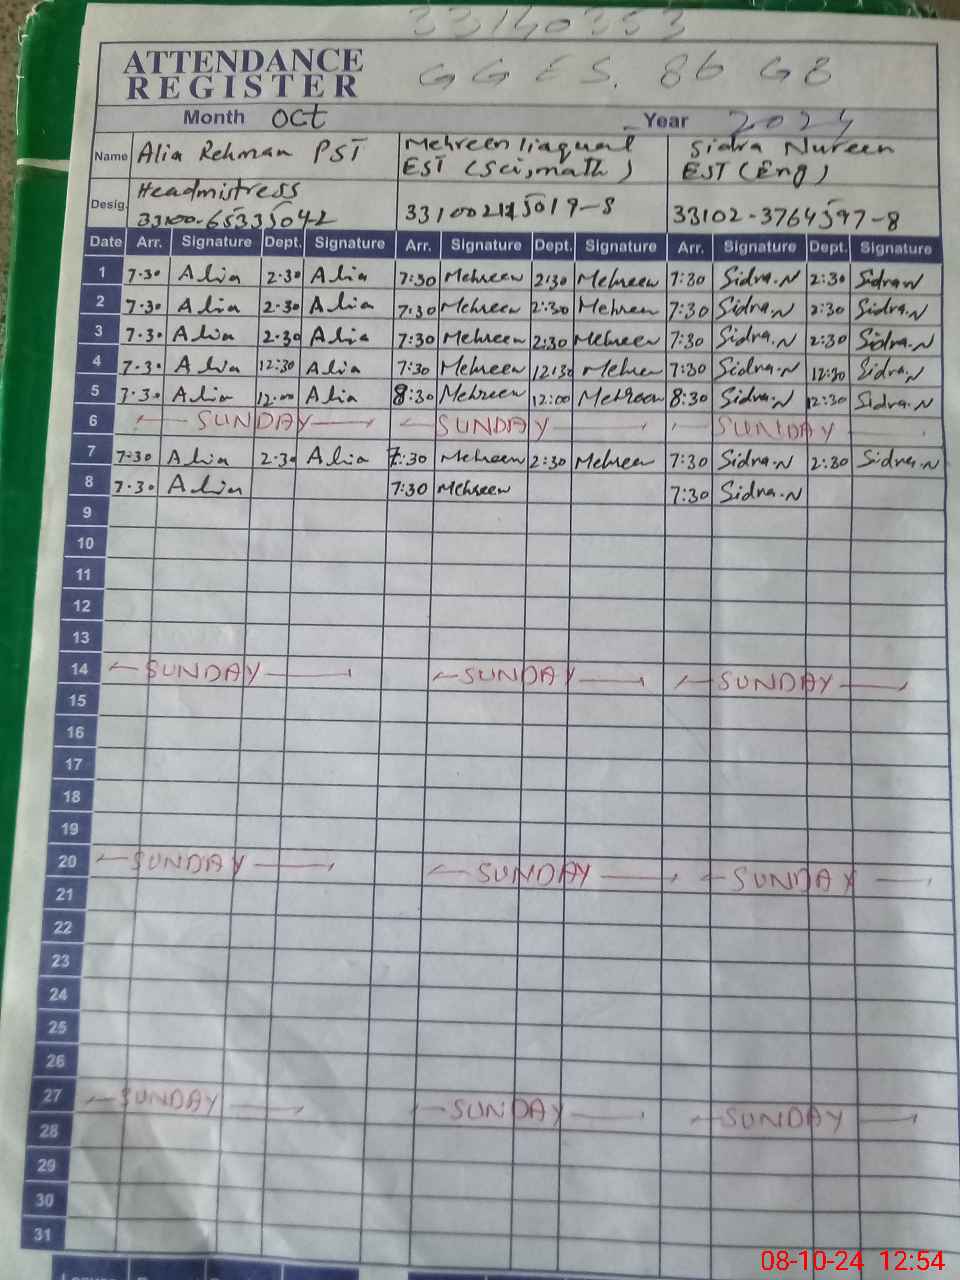 33140353
ATTENDANCE
REGISTER
GGES. 86 GB
Month Oct Year 2024
Name Alia Rehman PST Mehreen liaquat EST (Sci,math) Sidra Nureen EST (Eng)
Desig. Headmistress 33102-3764597-8
Date Arr. Signature Dept. Signature Arr. Signature Dept. Signature Arr. Signature Dept. Signature
1 7.30 Alia 2.30 Alia 7:30 Mehreen 2:30 Mehreen 7:30 Sidra.N 2:30 Sidra.N
2 7.30 Alia 2.30 Alia 7.30 Mehreen 2:30 Mehreen 7:30 Sidra.N 2:30 Sidra.N
3 7.30 Alia 2.30 Alia 7:30 Mehreen 2:30 Mehreen 7:30 Sidra.N 2:30 Sidra.N
4 7.30 Alia 12:30 Alia 7:30 Mehreen 12:30 Mehreen 7:30 Sidra.N 12:30 Sidra.N
5 7.30 Alia 12:00 Alia 8:30 Mehreen 12:00 Mehreen 8:30 Sidra.N 12:30 Sidra.N
6 SUNDAY SUNDAY SUNDAY
7 7:30 Alia 2.30 Alia 7:30 Mehreen 2:30 Mehreen 7:30 Sidra.N 2:30 Sidra.N
8 7.30 Alia 7:30 Mehreen 7:30 Sidra.N
9
10
11
12
13
14 SUNDAY SUNDAY SUNDAY
15
16
17
18
19
20 SUNDAY SUNDAY SUNDAY
21
22
23
24
25
26
27 SUNDAY SUNDAY SUNDAY
28
29
30
31
08-10-24 12:54